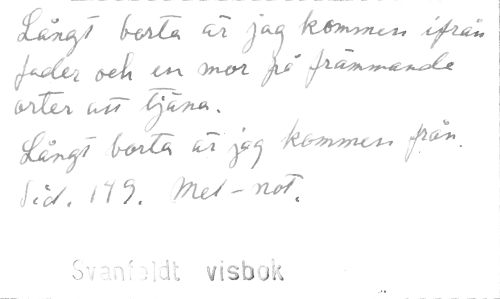 Långt borta är jag kommen ifrån
fader och en mor på främmande
orter att tjäna.
Långt borta är jag kommen från.
Sid. 149. Mel-not.
Svanfeldt visbok